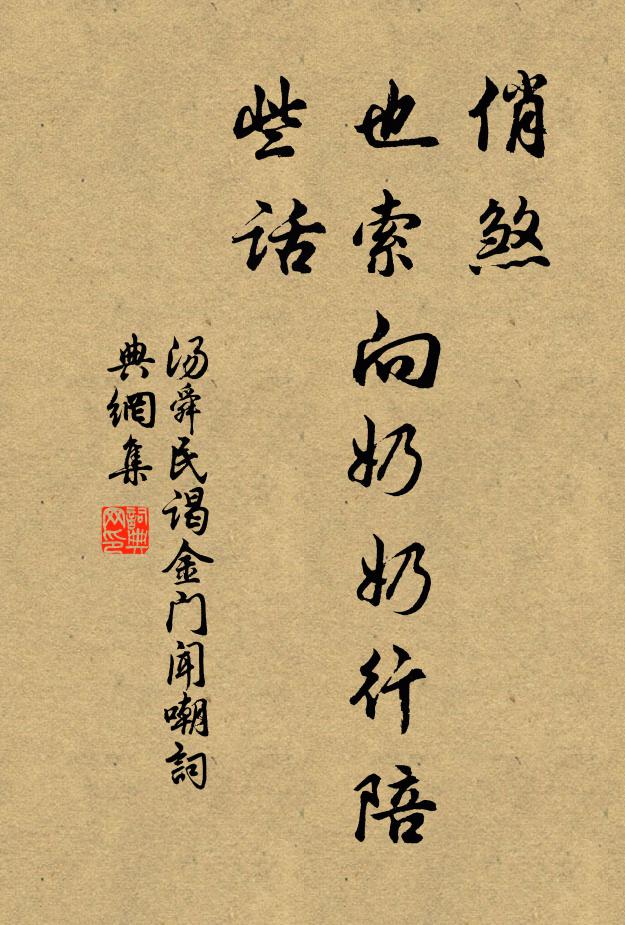 俏煞
也索向奶奶行陪
些话
汤舜民谒金门闻嘲詞
典網集
詞典网印